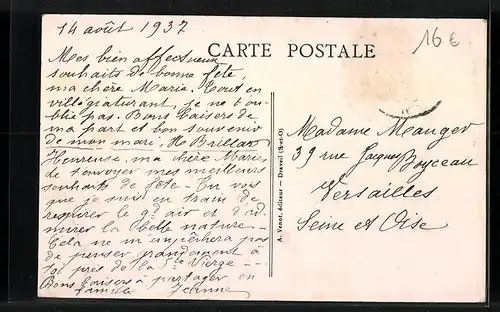 14 août 1937
CARTE POSTALE
16 €
Mes bien affectueux
souhaits de bonne fête,
ma chère Marie. Tout en
villégiaturant, je ne t'ou-
blie pas. Bons baisers de
ma part et bon souvenir
de mon mari. H. Brillard
Heureuse, ma chère Marie,
de t'envoyer mes meilleurs
souhaits de fête - Tu vois
que je suis en train de
respirer le gd air et d'ad-
mirer la belle nature -
Cela ne m'empêchera pas
de penser grandement à
toi près de la Ste Vierge ---
Bons baisers à partager en
famille Jeanne
A. Venot, éditeur — Draveil (S-et-O)
Madame Meauger
39 rue Jacques
Boyceau
Versailles
Seine et Oise